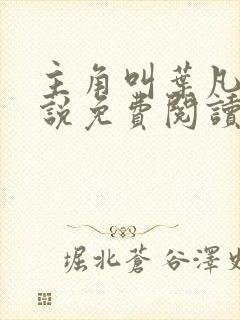 主角叫葉凡
說免費閱讀
堀北蒼谷澤